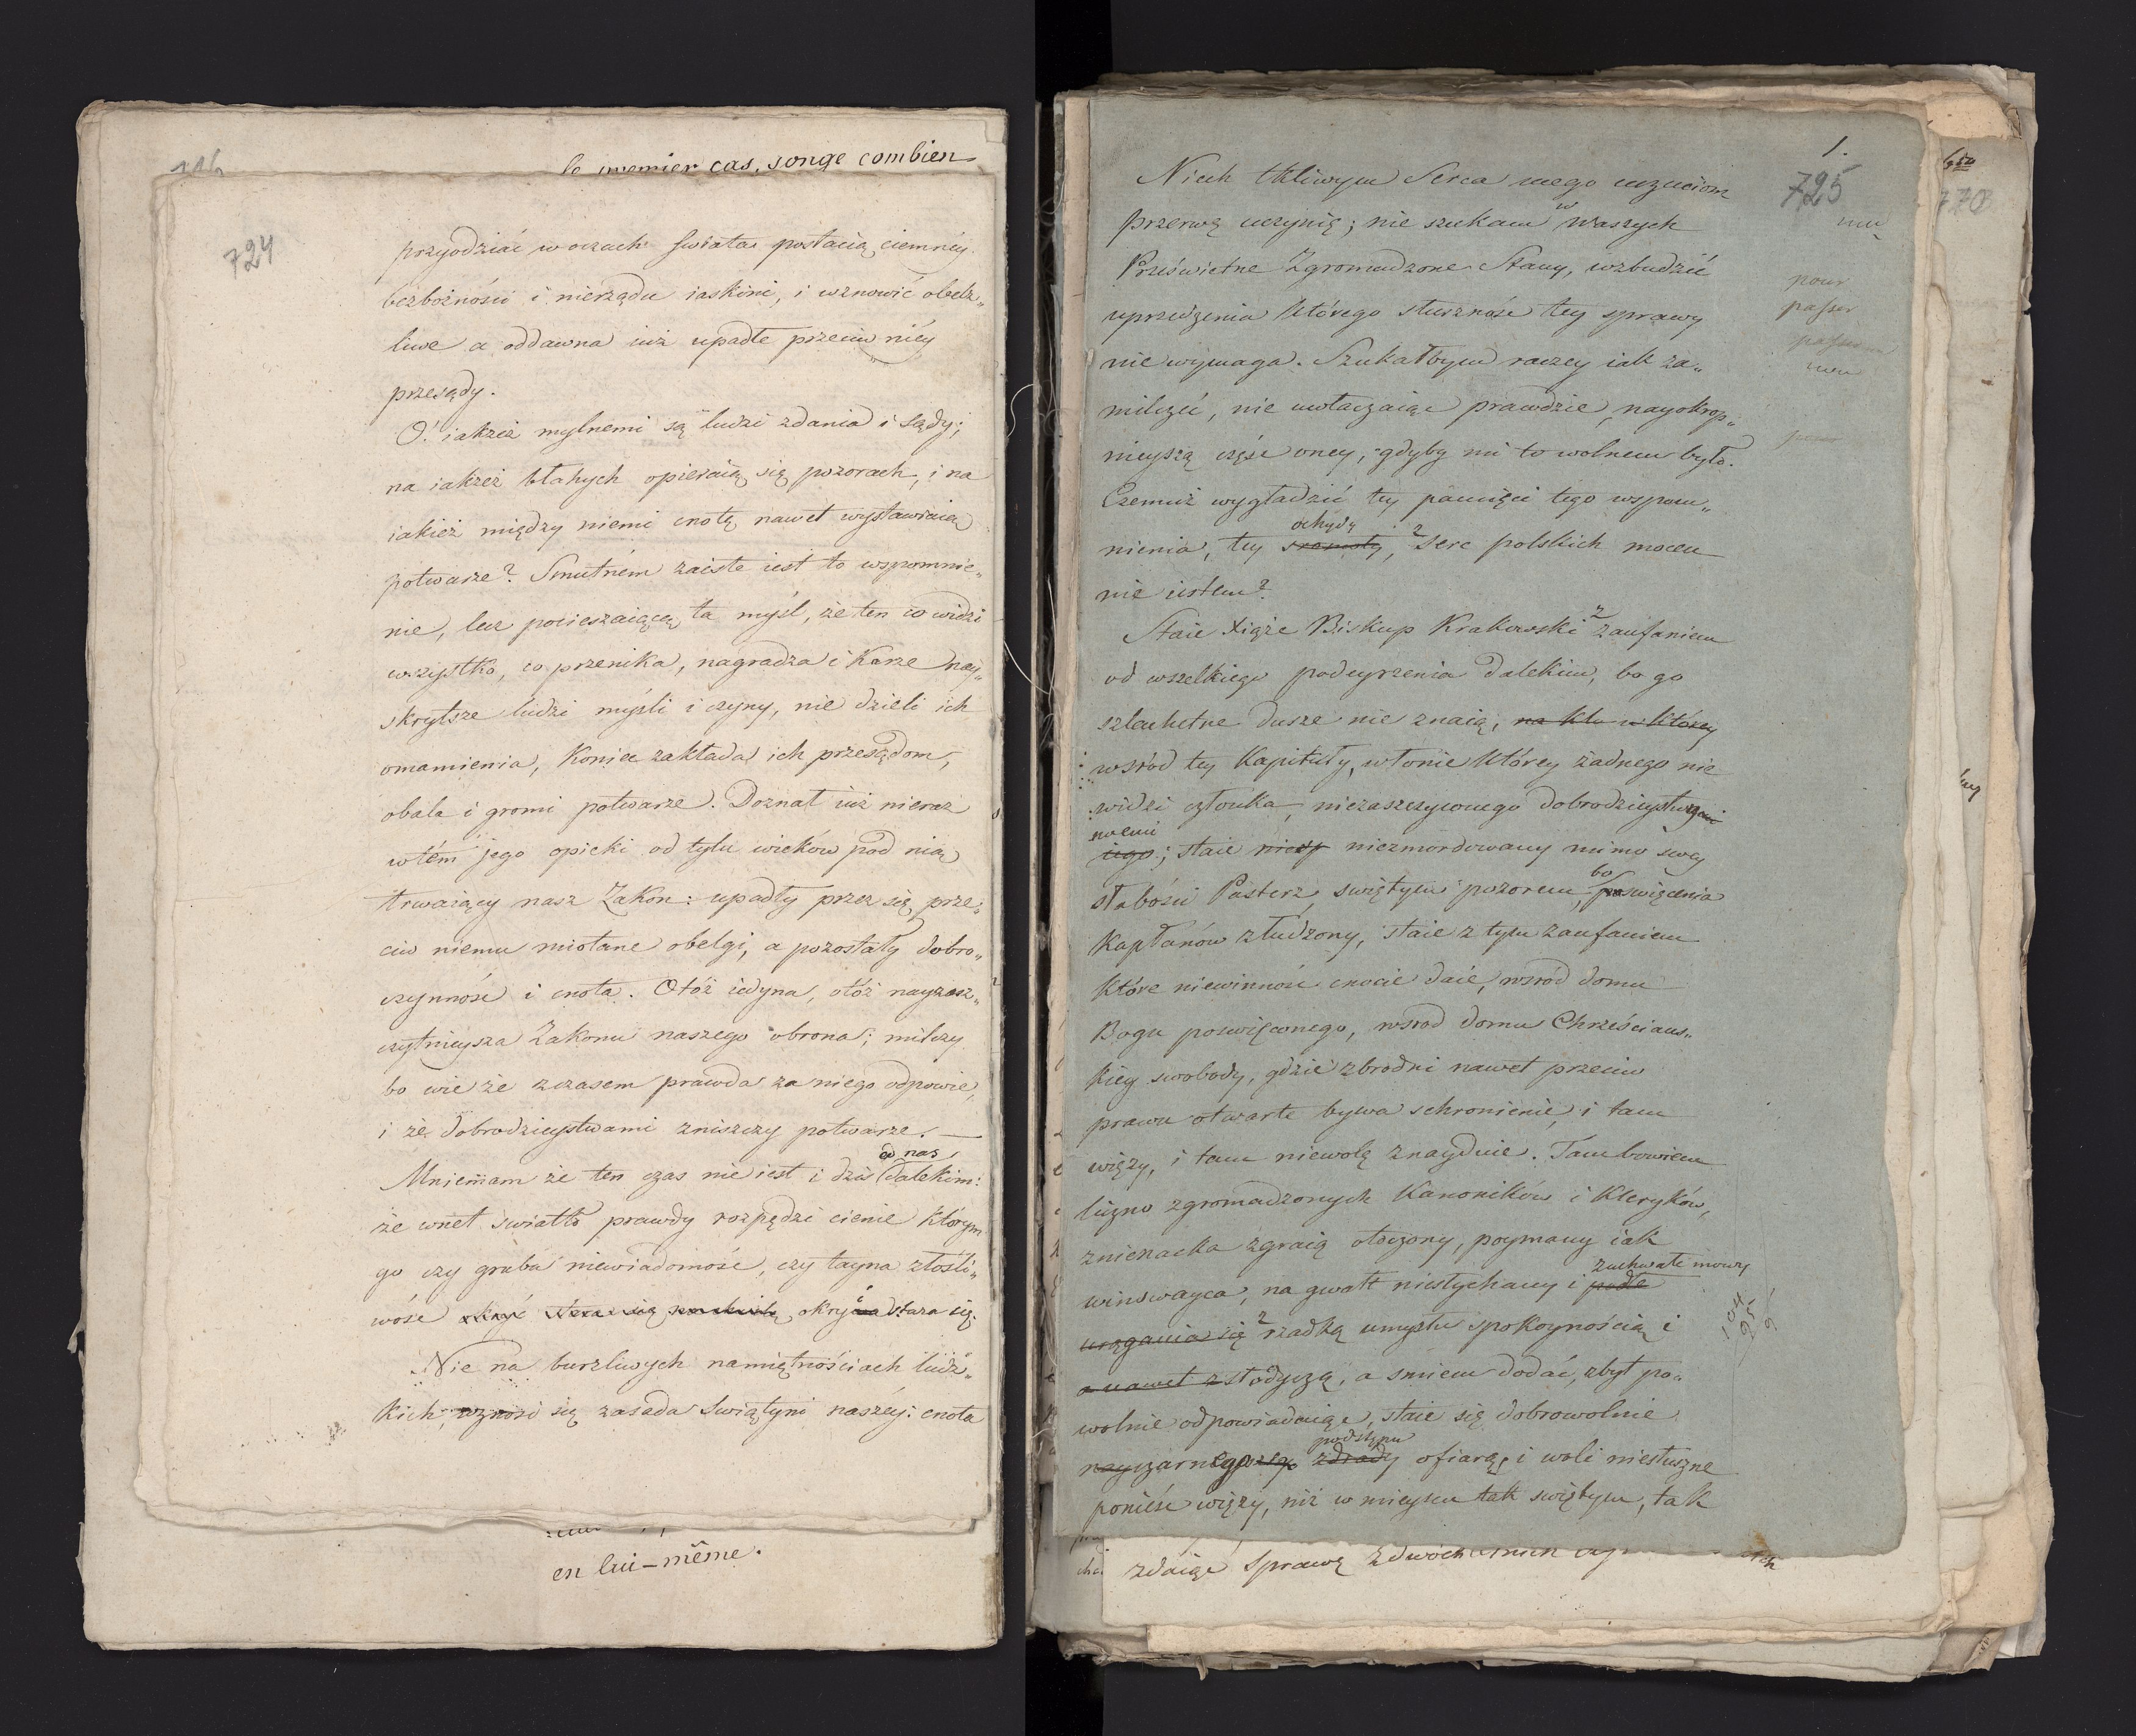 le premier cas, songe combien
724
przyodziać w oczach świata postacią ciemnéy
bezbożności i nierządu iaskini, i wznowić obelż„
liwe a oddawna iuż upadłe przeciw niéy
przesądy.
O! iakżeż mylnemi są ludzi zdania i sądy;
na iakżeż błahych opieraią się pozorach, i na
iakież między niemi cnotę nawet wystawiaią
potwarze? Smutném zaiste iest to wspomnie„
nie, lecz pocieszaiącą ta myśl, że ten co widzi
wszystko, co przenika, nagradza i karze nay„
skrytsze ludzi myśli i czyny, nie dzieli ich
omamienia, koniec zakłada ich przesądom,
obala i gromi potwarze. Doznał iuż nieraz
w tém jego opieki od tylu wieków pod nią
trwaiący nasz Zakon: upadły przez się prze„
ciw niemu miotane obelgi, a pozostały dobro„
czynność i cnota. Otóż iedyna, otóż nayzasz„
czytnieysza Zakonu naszego obrona; milczy
bo wie że z czasem prawda za niego odpowie,
i że dobrodzieystwami zniszczy potwarze. —
od nas
Mniemam że ten czas nie iest i dziś dalekim:
że wnet światło prawdy rozpędzi cienie którym
go czy gruba niewiadomość, czy tayna złośli„
wość okryć stara się.
Nie na burzliwych namiętnościach ludz„
kich, wznosi się zasada Swiątyni naszéy: cnota
en lui-même.
1.
725
Niech tkliwym Serca mego uczuciom
przerwę uczynię; nie szukam w Waszych
Prześwietne Zgromadzone Stany, wzbudzić
uprzedzenia którego słuszność tey sprawy
nie wymaga. Szukałbym raczey iak za„
milczeć, nie uwłaczaiąc prawdzie, nayokrop„
nieyszą część oney, gdyby mi to wolnem było.
Czemuż wygładzić tey pamięci tego wspom„
ohydy
nienia, tey sromoty, z serc polskich mocen
nie iestem?
Staie Xiąże Biskup Krakowski z zaufaniem
od wszelkiego podeyrzenia dalekim, bo go
szlachetne dusze nie znaią, na któ w którey
wsród tey Kapituły, w łonie którey żadnego nie
widzi członka, niezaszczyconego dobrodzieystwami
swemi
iego; staie niezmordowany mimo swey
słabości Pasterz, swiętym pozorem, bo poswięcenia
Kapłanów złudzony, staie z tym zaufaniem
które niewinność cnocie daie, wsród domu
Bogu poswięconego, wsrod domu Chrześcians„
kiey swobody, gdzie zbrodni nawet przeciw
prawu otwarte bywa schronienie, i tam
więzy, i tam niewolę znayduie. Tam bowiem
liczno zgromadzonych Kanoników i Kleryków,
znienacka zgraią otoczony, poymany iak
zuchwałe mowy
winowayca, na gwałt niesłychany i podłe
urągania się z rzadką umysłu spokoynością i
a nawet z słodyczą, a smiem dodać, zbyt po„
wolnie odpowiadaiąc, staie się dobrowolnie
podstępu
nayczarnieyszego zdrady ofiarą, i woli niesłuszne
ponieść więzy, niż w mieyscu tak swiętym, tak
zdaiąc Sprawę
pour
passer
770